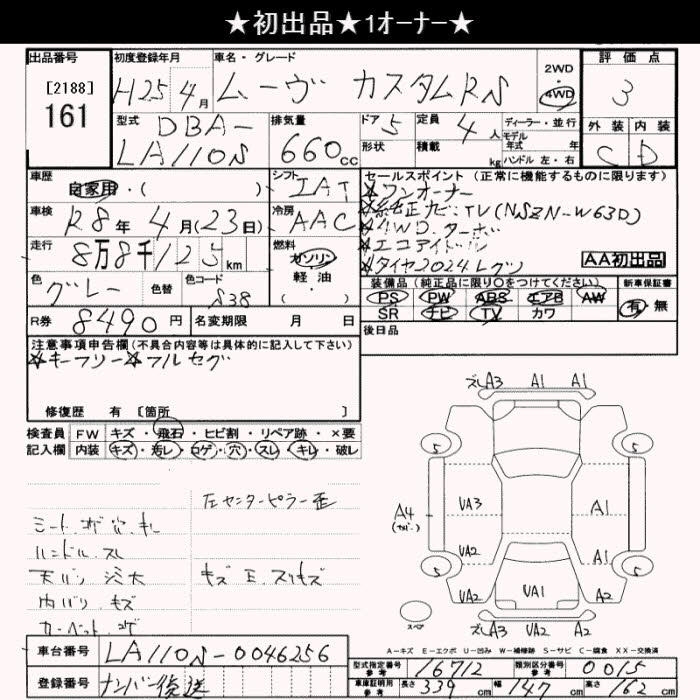 ★初出品★1オーナー★
出品番号 初度登録年月 車名・グレード 2WD 評価点
[2188] H25年4月 ムーヴ カスタムRS 4WD 3
161
型式 DBA- 排気量 ドア 5 定員 4人 ディーラー・並行 外装 内装
LA110S 660cc 形状 積載 kg モデル年式 年式 ハンドル 左・右 C D
車歴 シフト セールスポイント (正常に機能するものに限ります)
自家用・( ) IAT ☆ワンオーナー
車検 R8年4月(23日) 冷房 AAC ☆純正ナビ・TV(NSZN-W63D)
☆4WD.ターボ
走行 8万8千125km 燃料 ガソリン 軽油 ( ) ☆エコアイドル
☆タイヤ2024 AA初出品
色 グレー 色替 色コード S38
装備品 (純正品に限り○をつけてください) 新車保証書
PS PW ABS エアB AW 有・無
SR ナビ TV カワ
R券 8490円 名変期限 月 日 後日品
注意事項申告欄 (不具合内容等は具体的に記入して下さい)
☆キーフリー☆フルセグ
修復歴 有 [箇所 ]
検査員 FW キズ・飛石・ヒビ割・リペア跡・×要
記入欄 内装 キズ・汚レ・コゲ・穴・スレ・キレ・破レ
左センターピラー歪
シート.コゲ.穴.キレ
ハンドル.スレ
天バリ 汚大 キズ E.スリキズ
内バリ キズ
カーペット.コゲ
ズレA3 A1 A1
5 5
A4 UA3 A1
UA2 A1
5 5
UA2 UA1 A2
スペア ズレA3 UA2 A2
A-キズ E-エクボ U-凹み W-補修跡 S-サビ C-腐食 XX-交換済
車台番号 LA110S-0046256
登録番号 ナンバー後送
型式指定番号 参考 16712 類別区分番号 参考 0015
車庫証明用 参考 長さ 339cm 幅 147cm 高さ 162cm